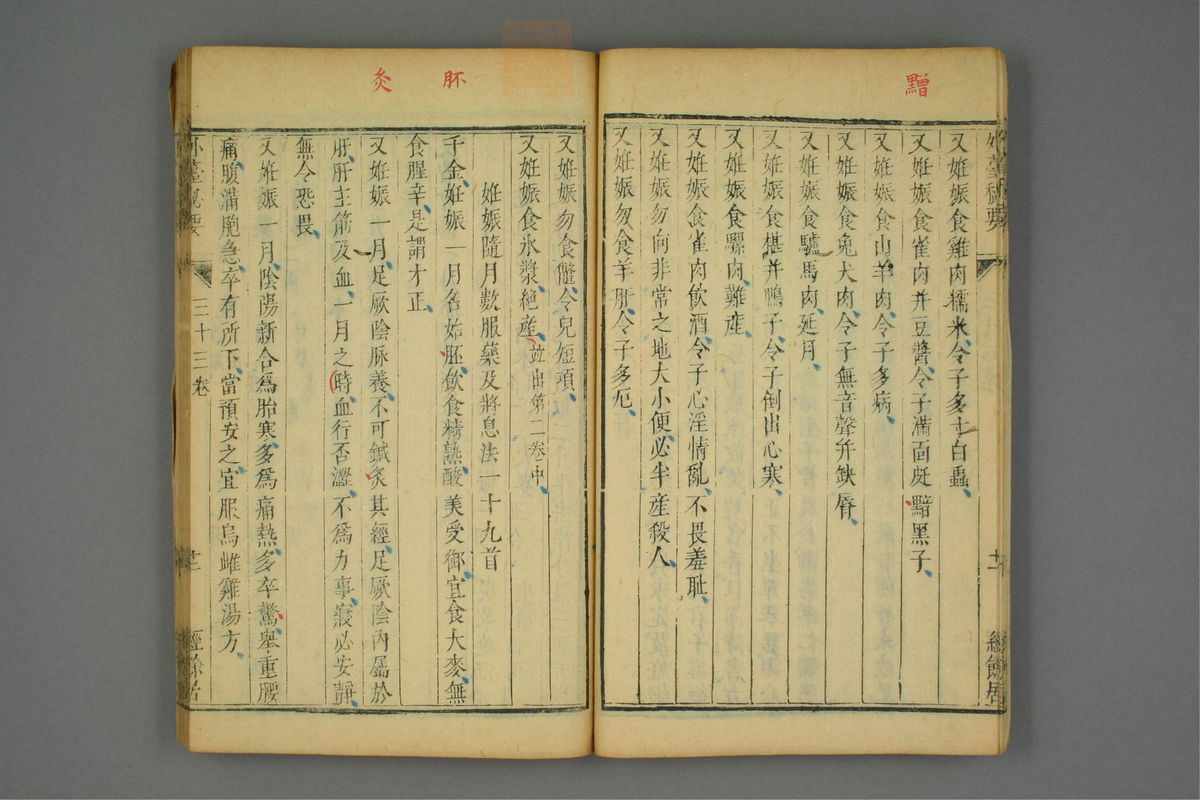 黵
外臺秘要
十一
經餘居
又姙娠食雞肉糯米令子多寸白蟲
又姙娠食雀肉并豆醬令子滿面䵟黯黑子
又姙娠食山羊肉令子多病
又姙娠食兔犬肉令子無音聲并缺脣
又姙娠食驢馬肉延月
又姙娠食椹并鴨子令子倒出心寒
又姙娠食騾肉難産
又姙娠食雀肉飲酒令子心淫情亂不畏羞耻
又姙娠勿向非常之地大小便必半産殺人
又姙娠勿食羊肝令子多厄
胚
灸
又姙娠勿食鼈令兒短頭
又姙娠食氷漿絶産並出第二卷中
姙娠隨月數服藥及將息法一十九首
千金姙娠一月名始胚飲食精熟酸美受御宜食大麥無
食腥辛是謂才正
又姙娠一月足厥陰脉養不可鍼灸其經足厥陰内屬於
肝肝主筋及血一月之時血行否澀不爲力事寢必安靜
無令恐畏
又姙娠一月陰陽新合爲胎寒多爲痛熱多卒驚舉重腰
痛腹滿胞急卒有所下當預安之宜服烏雌雞湯方
外臺秘要
三十三卷
十二
經餘居